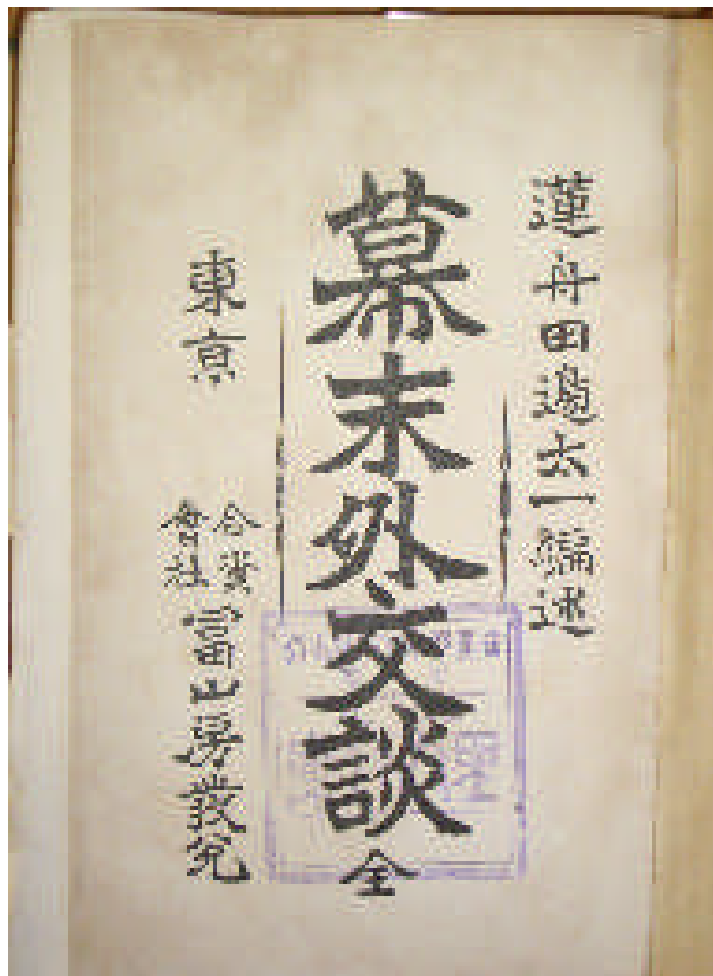 蓮舟田邊太一編述
幕末外交談 全
東京 合資會社 冨山房發兌